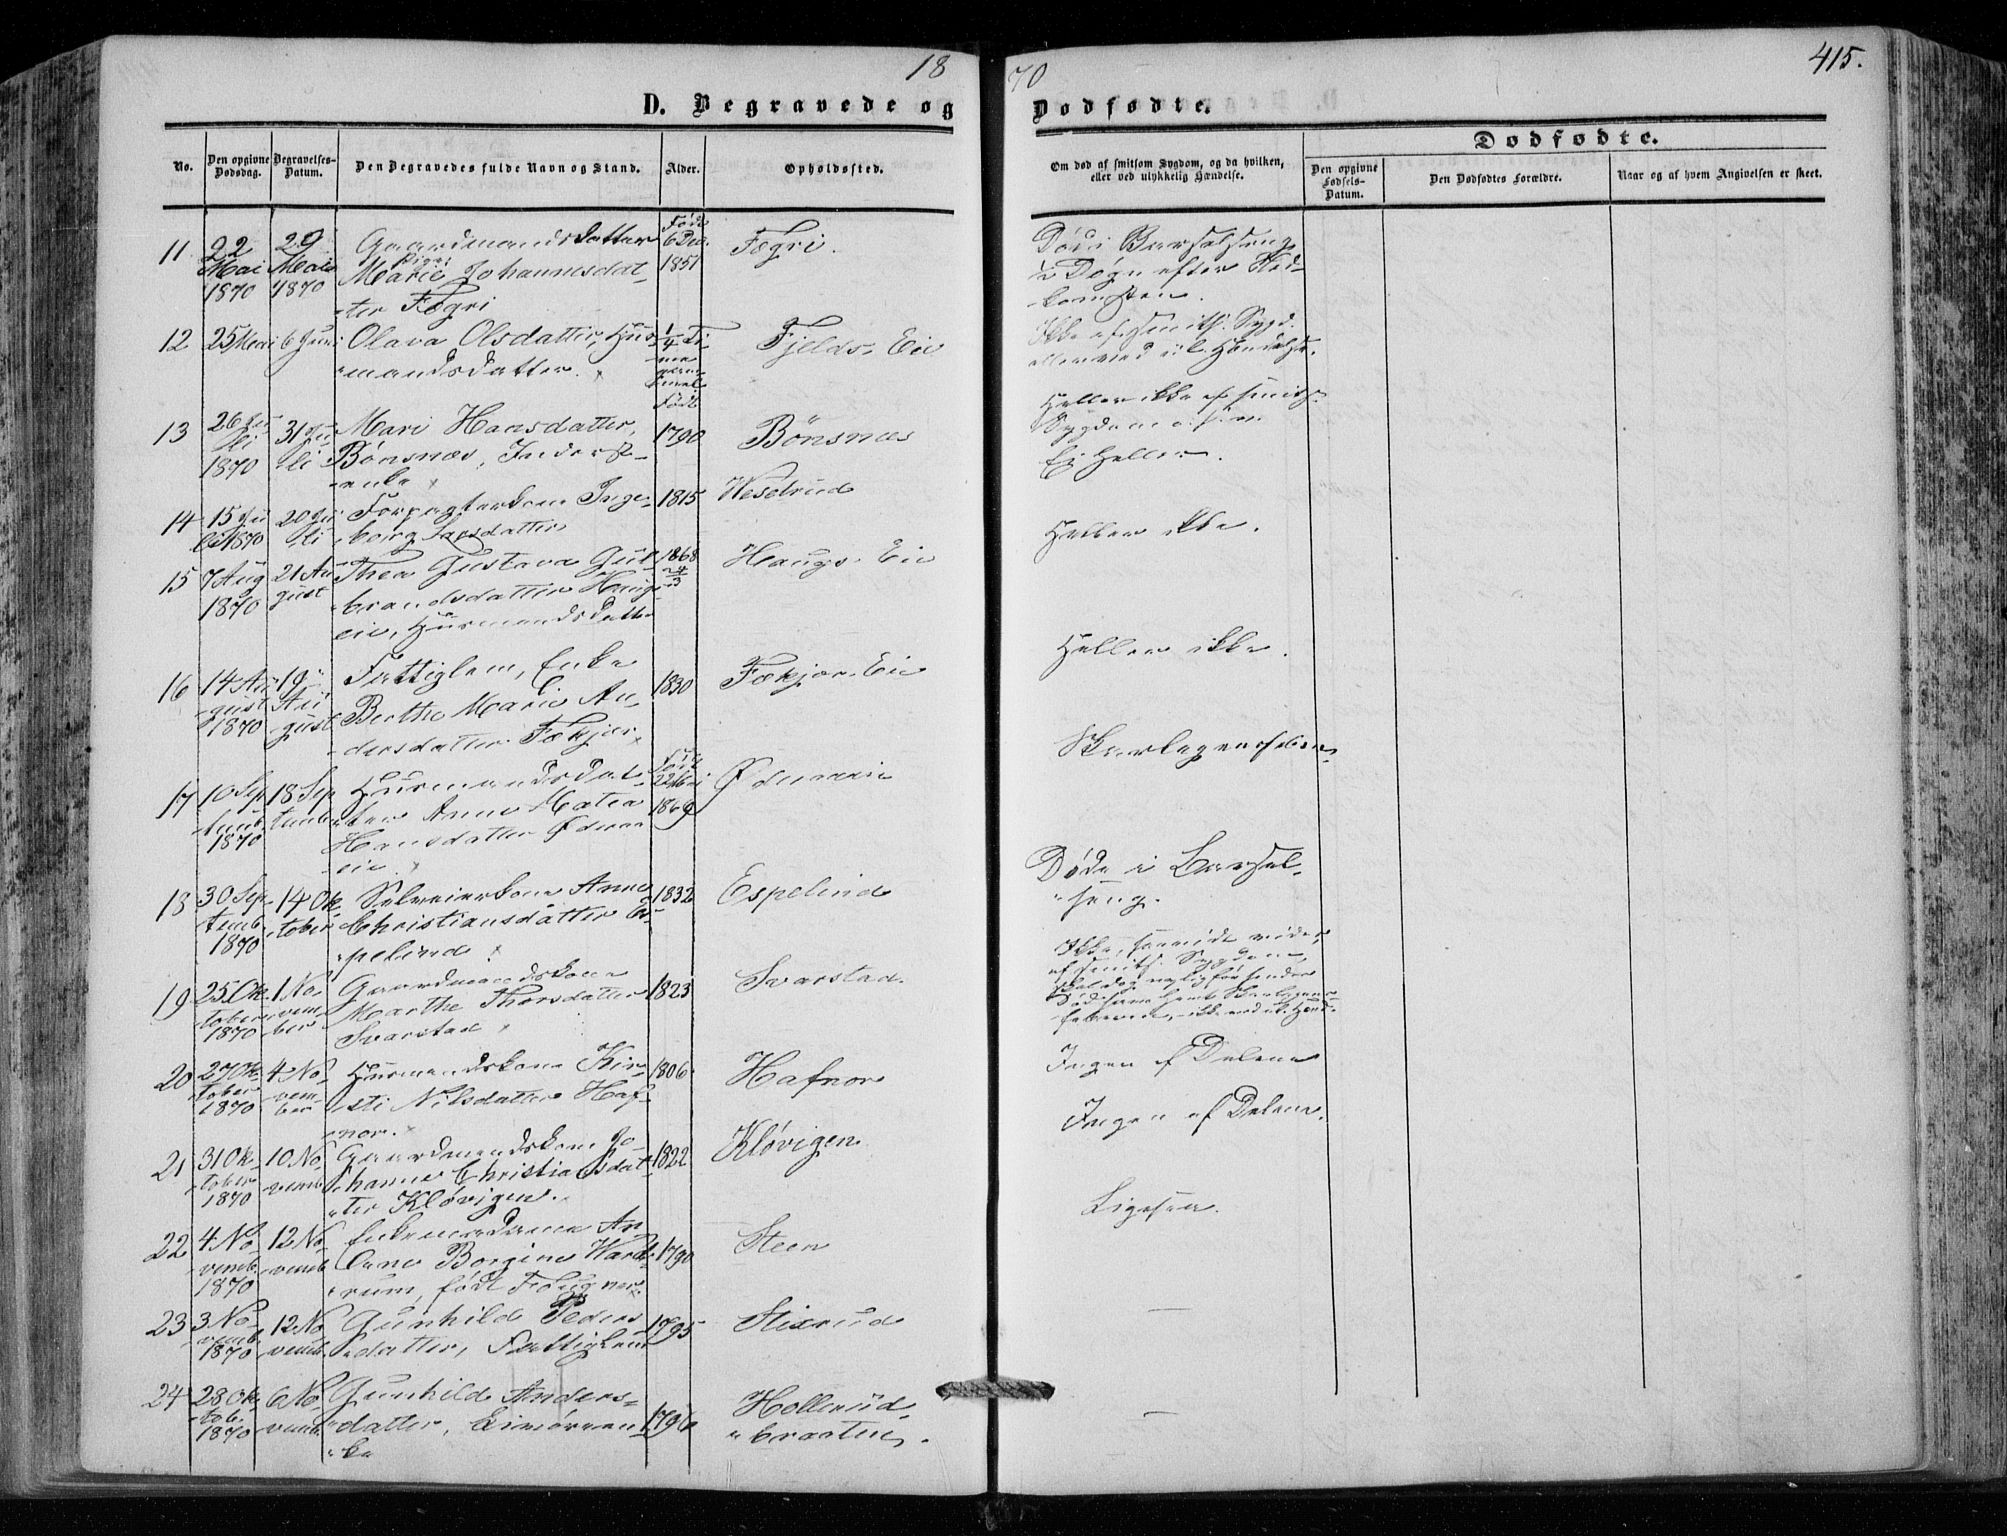 18
70
415.
D. Begravede og
Dødfødte.
No.
Den opgivne Dødsdag.
Begravelses-Datum.
Den Begravedes fulde Navn og Stand.
Alder.
Opholdssted.
Om død af smitsom Sygdom, og da hvilken,
eller ved ulykkelig Hændelse.
Dødfødte.
Den opgivne Fødsels-Datum.
Den Dødfødtes Forældre.
Naar og af hvem Angivelsen er skeet.
11
22 Mai 1870
29 Mai 1870
Gaardmandsdatter
Pige
Marie Johannesdat-
ter Fægri
Født 6 Dec. 1851
Fægri.
Død i Barselseng
Døgn efter Ned-
komsten.
12
25 Mai
6 Juni
Olava Olsdatter, Hus-
mandsdatter.
1/4 Time
Fjelds. Eie
Ikke af smits. Sygd.
eller ved ul. Hændelse.
13
26 Juli 1870
31 Juli
Mari Hansdatter,
Bønsnæs, Inderst-
enke
Født 1790
Bønsnæs
Heller ikke af smits.
Sygdom
Ei Heller.
14
15 Juli 1870
20 Juli
Forpagterkone Inge-
borg Larsdatter
1815
Weselrud
Heller ikke.
15
7 Aug 1870
21 August
Thea Gustava Gul-
brandsdatter Haugs-
eie, Husmandsdatter
1868
Haugs. Eie
Heller ikke.
16
14 August 1870
19 August
Fattiglem, Enke
Berthe Marie An-
dersdatter Fækjær
1830
Fækjær. Eie
Skarlagensfeber.
17
10 Septemb. 1870
18 Septemb.
Husmandsdat-
ter Anne Matea
Hansdatter Ødene
eie.
Født 22 Mai 1869
18
30 Septemb. 1870
14 Oktober
Selveierkone Anne
Christiansdatter Es-
pelind
1832
Espelind
Døde i Barsel-
seng.
19
25 Oktober 1870
1 November
Gaardmandskone
Marthe Thorsdatter
Svarstad
1823
Svarstad.
Ikke, saavidt vides,
af smits. Sygdom,
20
27 Oktober 1870
4 November
Husmandskone Kir-
sti Nilsdatter Haf-
nor.
1806
Hafnor
Ingen af Delene
21
31 Oktober 1870
10 Novemb.
Gaardmandskone Jo-
hanne Christiansdat-
ter Kløvigen.
1822
Kløvigen
Ingen af Delene.
22
4 Novemb. 1870
12 Novemb.
Enkemadame An-
Borgine Ward-
rum, født
1790
Steen
Ligesaa.
23
3 Novemb. 1870
12 Novemb.
Gunhild Peders-
datter, Fattiglem
1795
Stixrud
—
24
28 Oktob. 1870
6 Novemb.
Gunhild Anders-
datter,
ke
1796
Hollerud-
braaten.
—